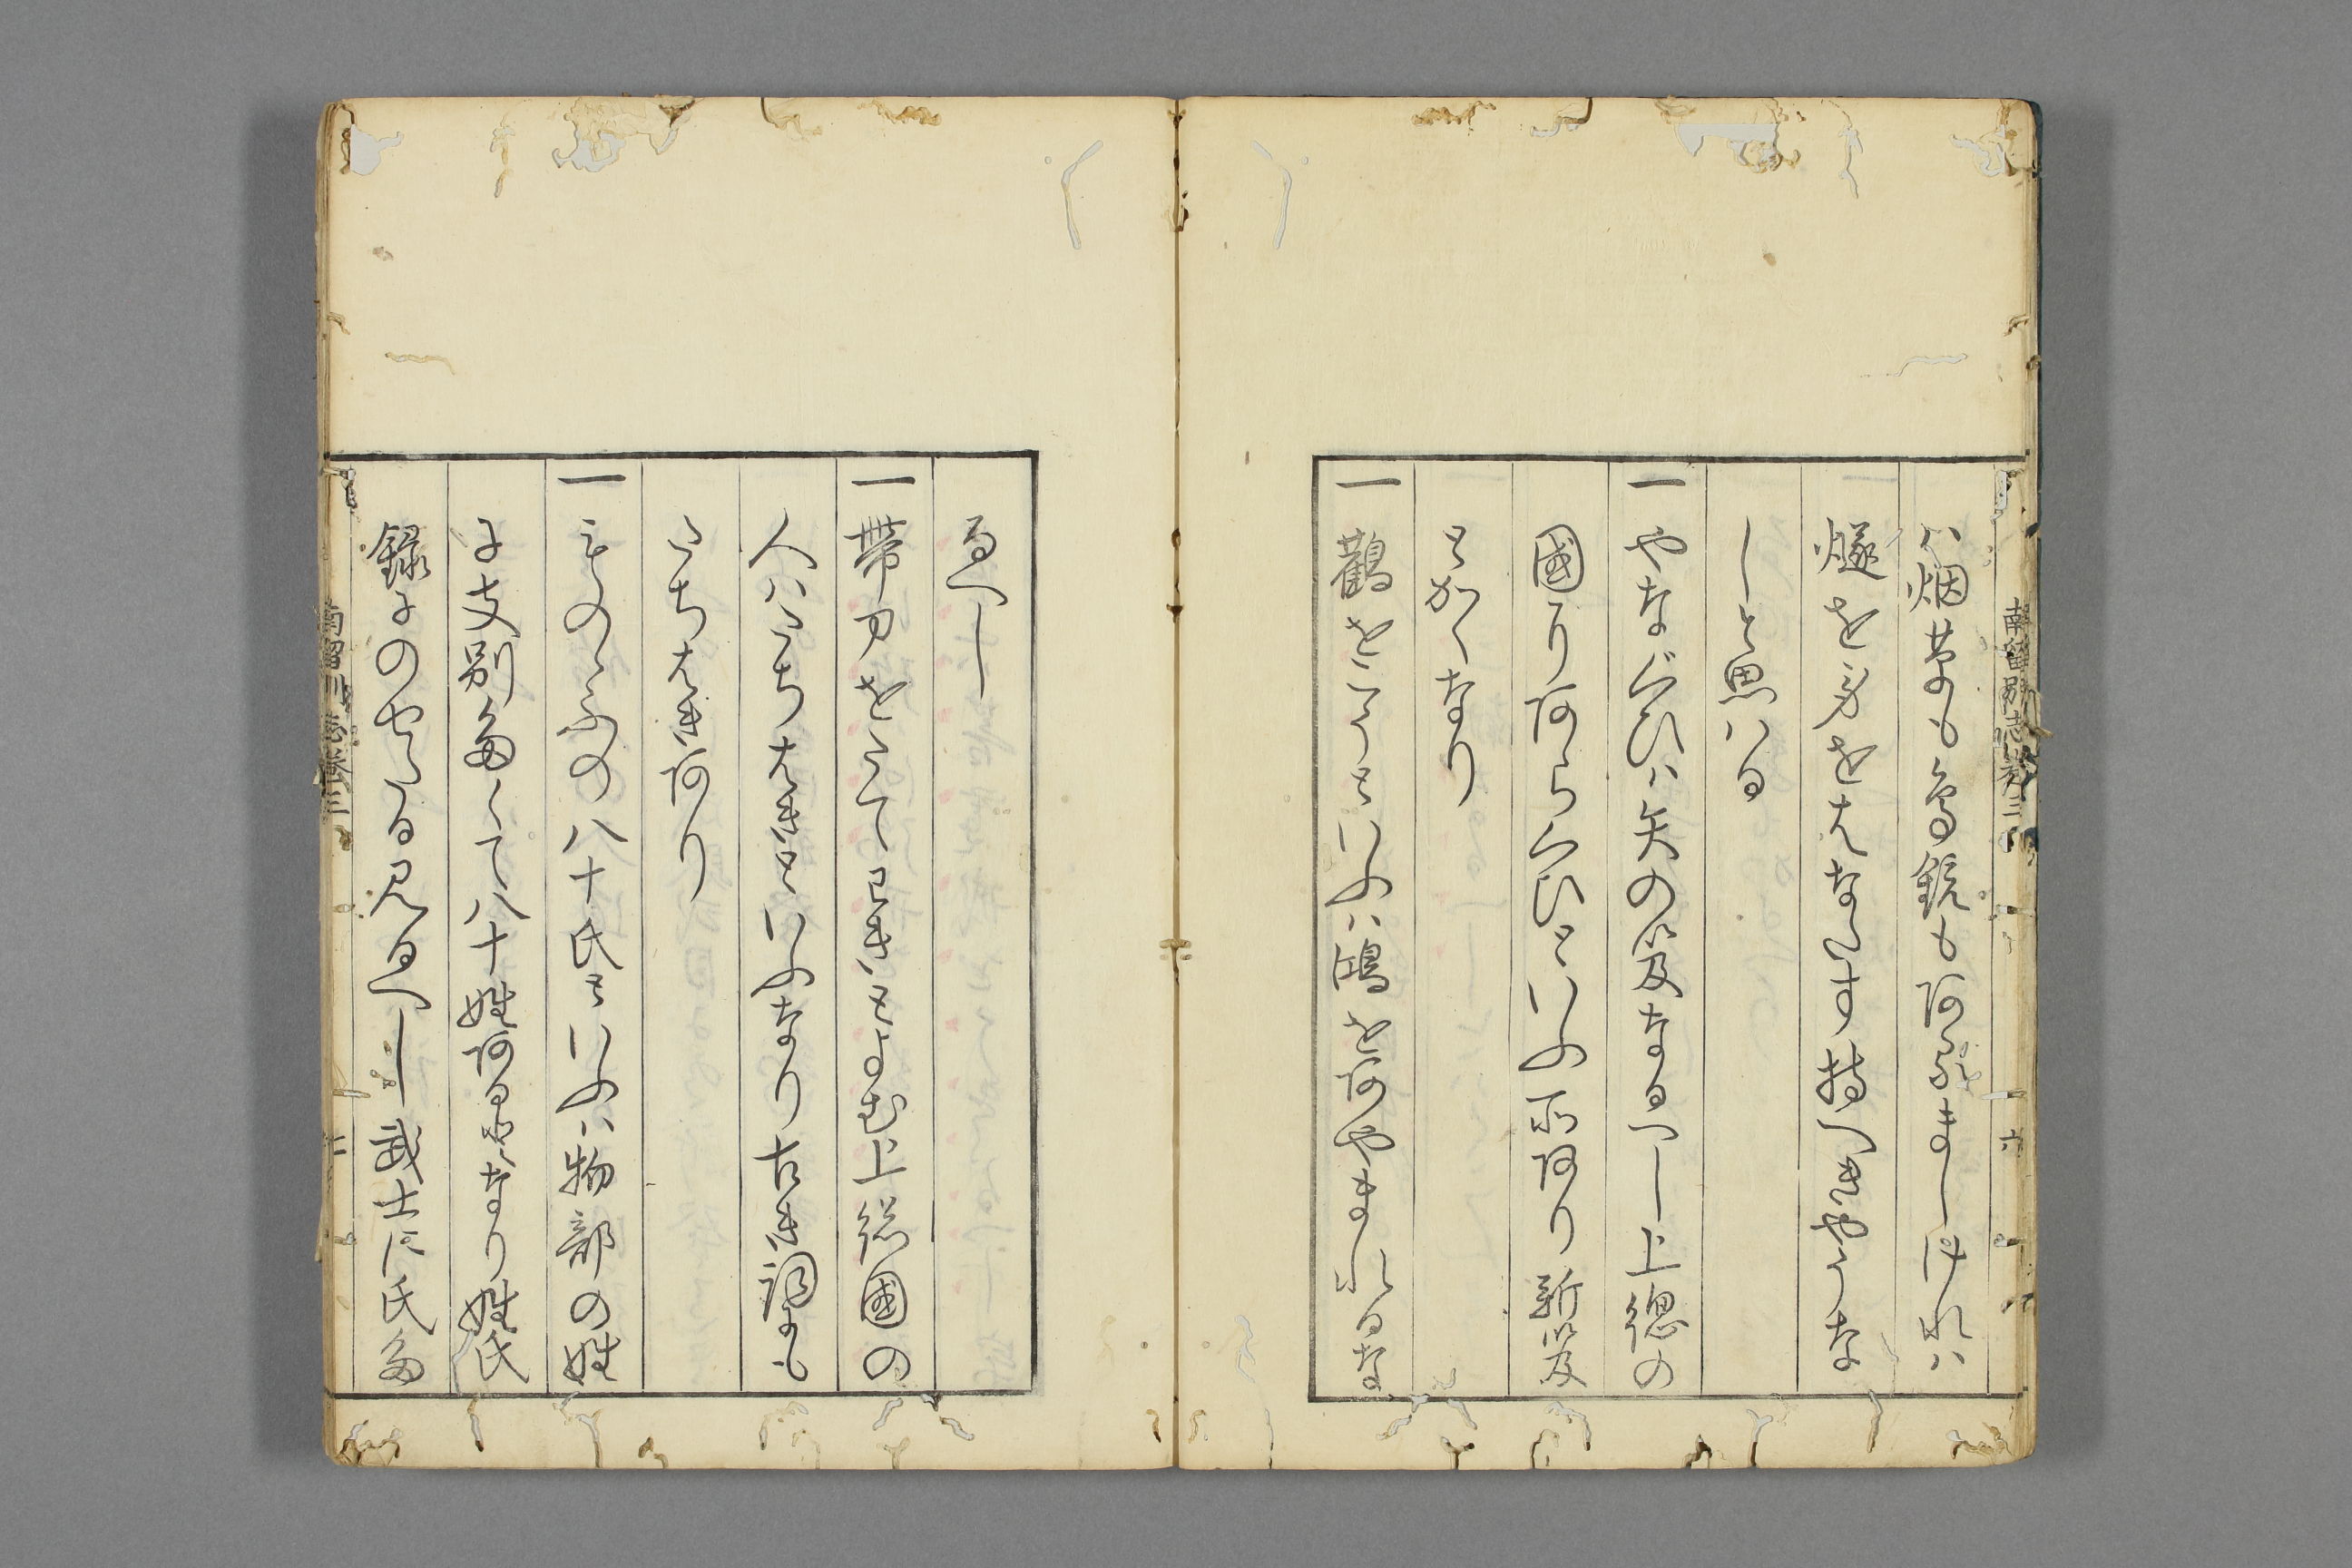 南留別志巻三
ハ烟草も烏銃もあらましけれハ
燧を必をはなたす持へきやうな
しと思ハる
一やなぐひハ矢の笈なるへし上總の
國にあらくひといふ所あり新笈
とかくなり
一鸛をこうといふハ鵠をあやまれるな
るへし
一帶刀をたてわきとよむ上総國の
人ハたちはきといふなり古き詞にも
たちはきあり
一ものゝふの八十氏といふハ物部の姓
に支別多くて八十姓ある故なり姓氏
録にのせたる見るへし武士に氏多